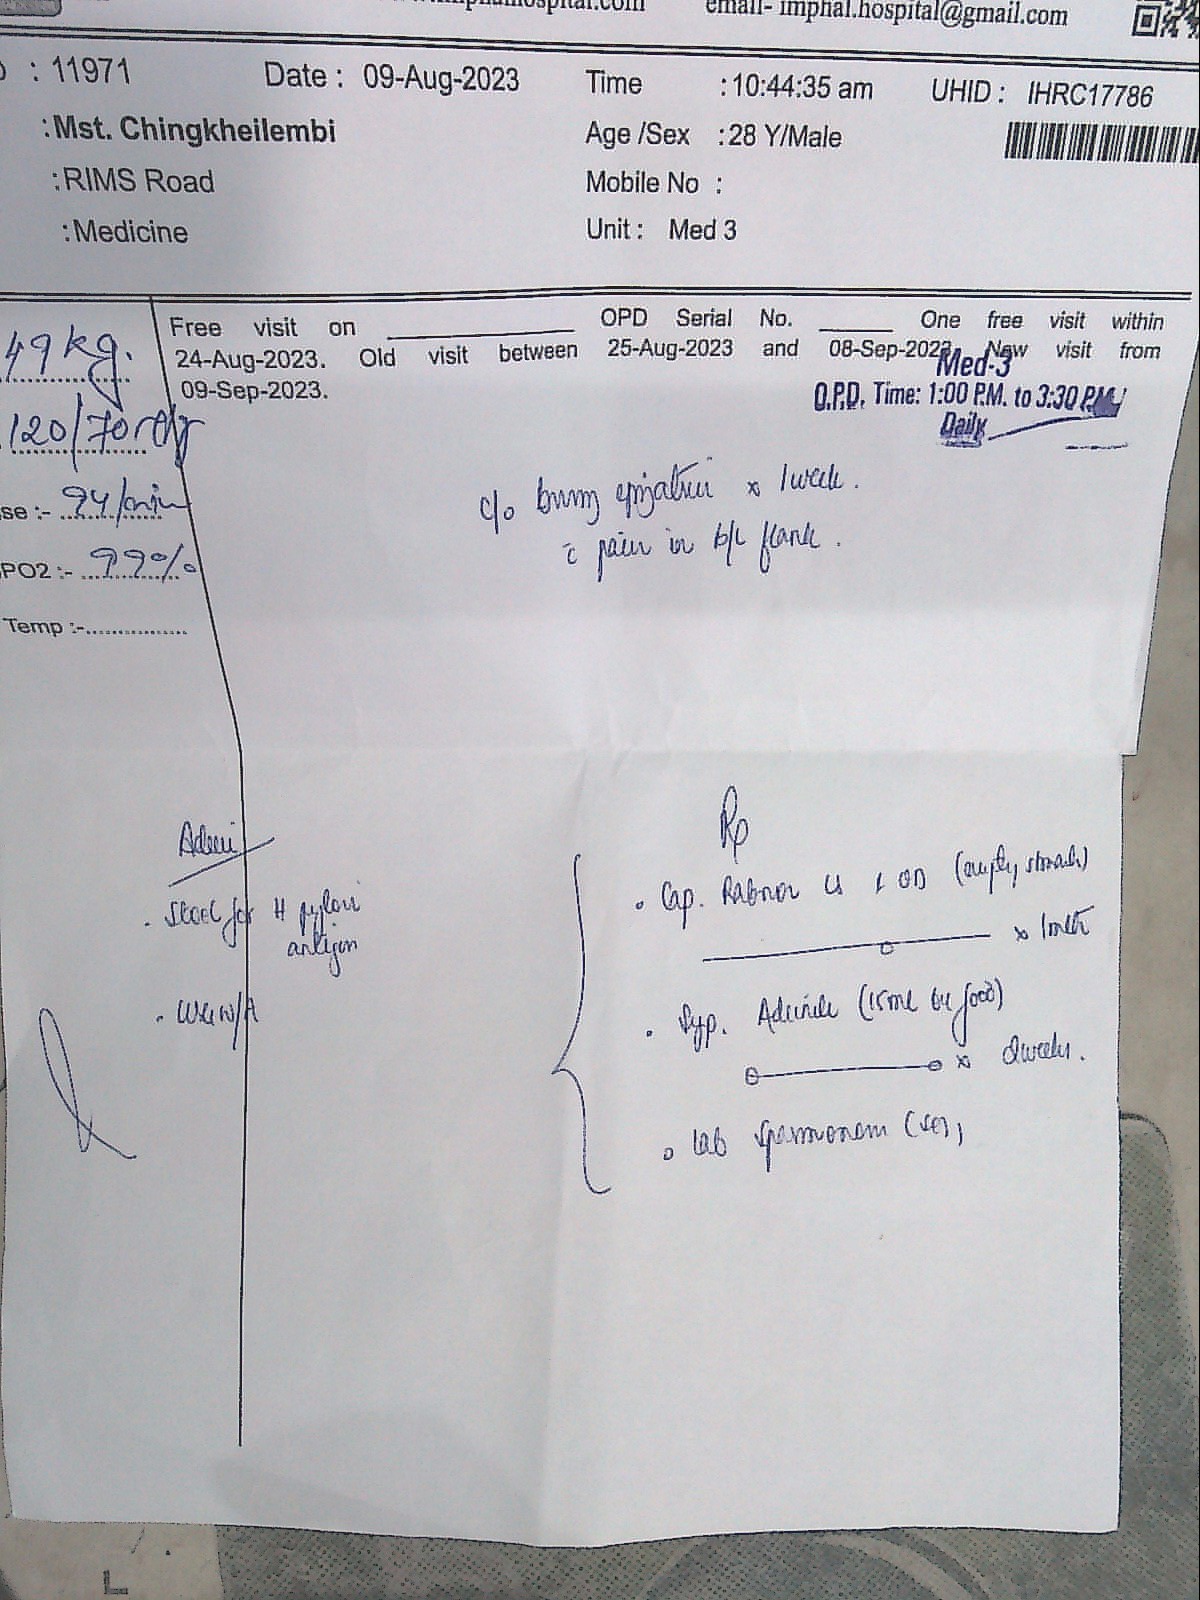 email- imphal.hospital@gmail.com
: 11971 Date : 09-Aug-2023 Time : 10:44:35 am UHID : IHRC17786
:Mst. Chingkheilembi Age /Sex : 28 Y/Male
:RIMS Road Mobile No :
:Medicine Unit : Med 3
49 kg.
120/70
se :- 94/min
PO2 :- 99%
Temp :-
Free visit on ____ OPD Serial No. ____ One free visit within
24-Aug-2023. Old visit between 25-Aug-2023 and 08-Sep-2023. New visit from
09-Sep-2023.
Med-3
O.P.D. Time: 1:00 P.M. to 3:30 P.M.
Daily
c/o x 1 week.
c̄ pain in b/l flank.
Stool for H pylori
antigen
Rx
Cap. OD (empty stomach)
x 1 mth
Syp. (15ml food)
x 2 weeks.
L